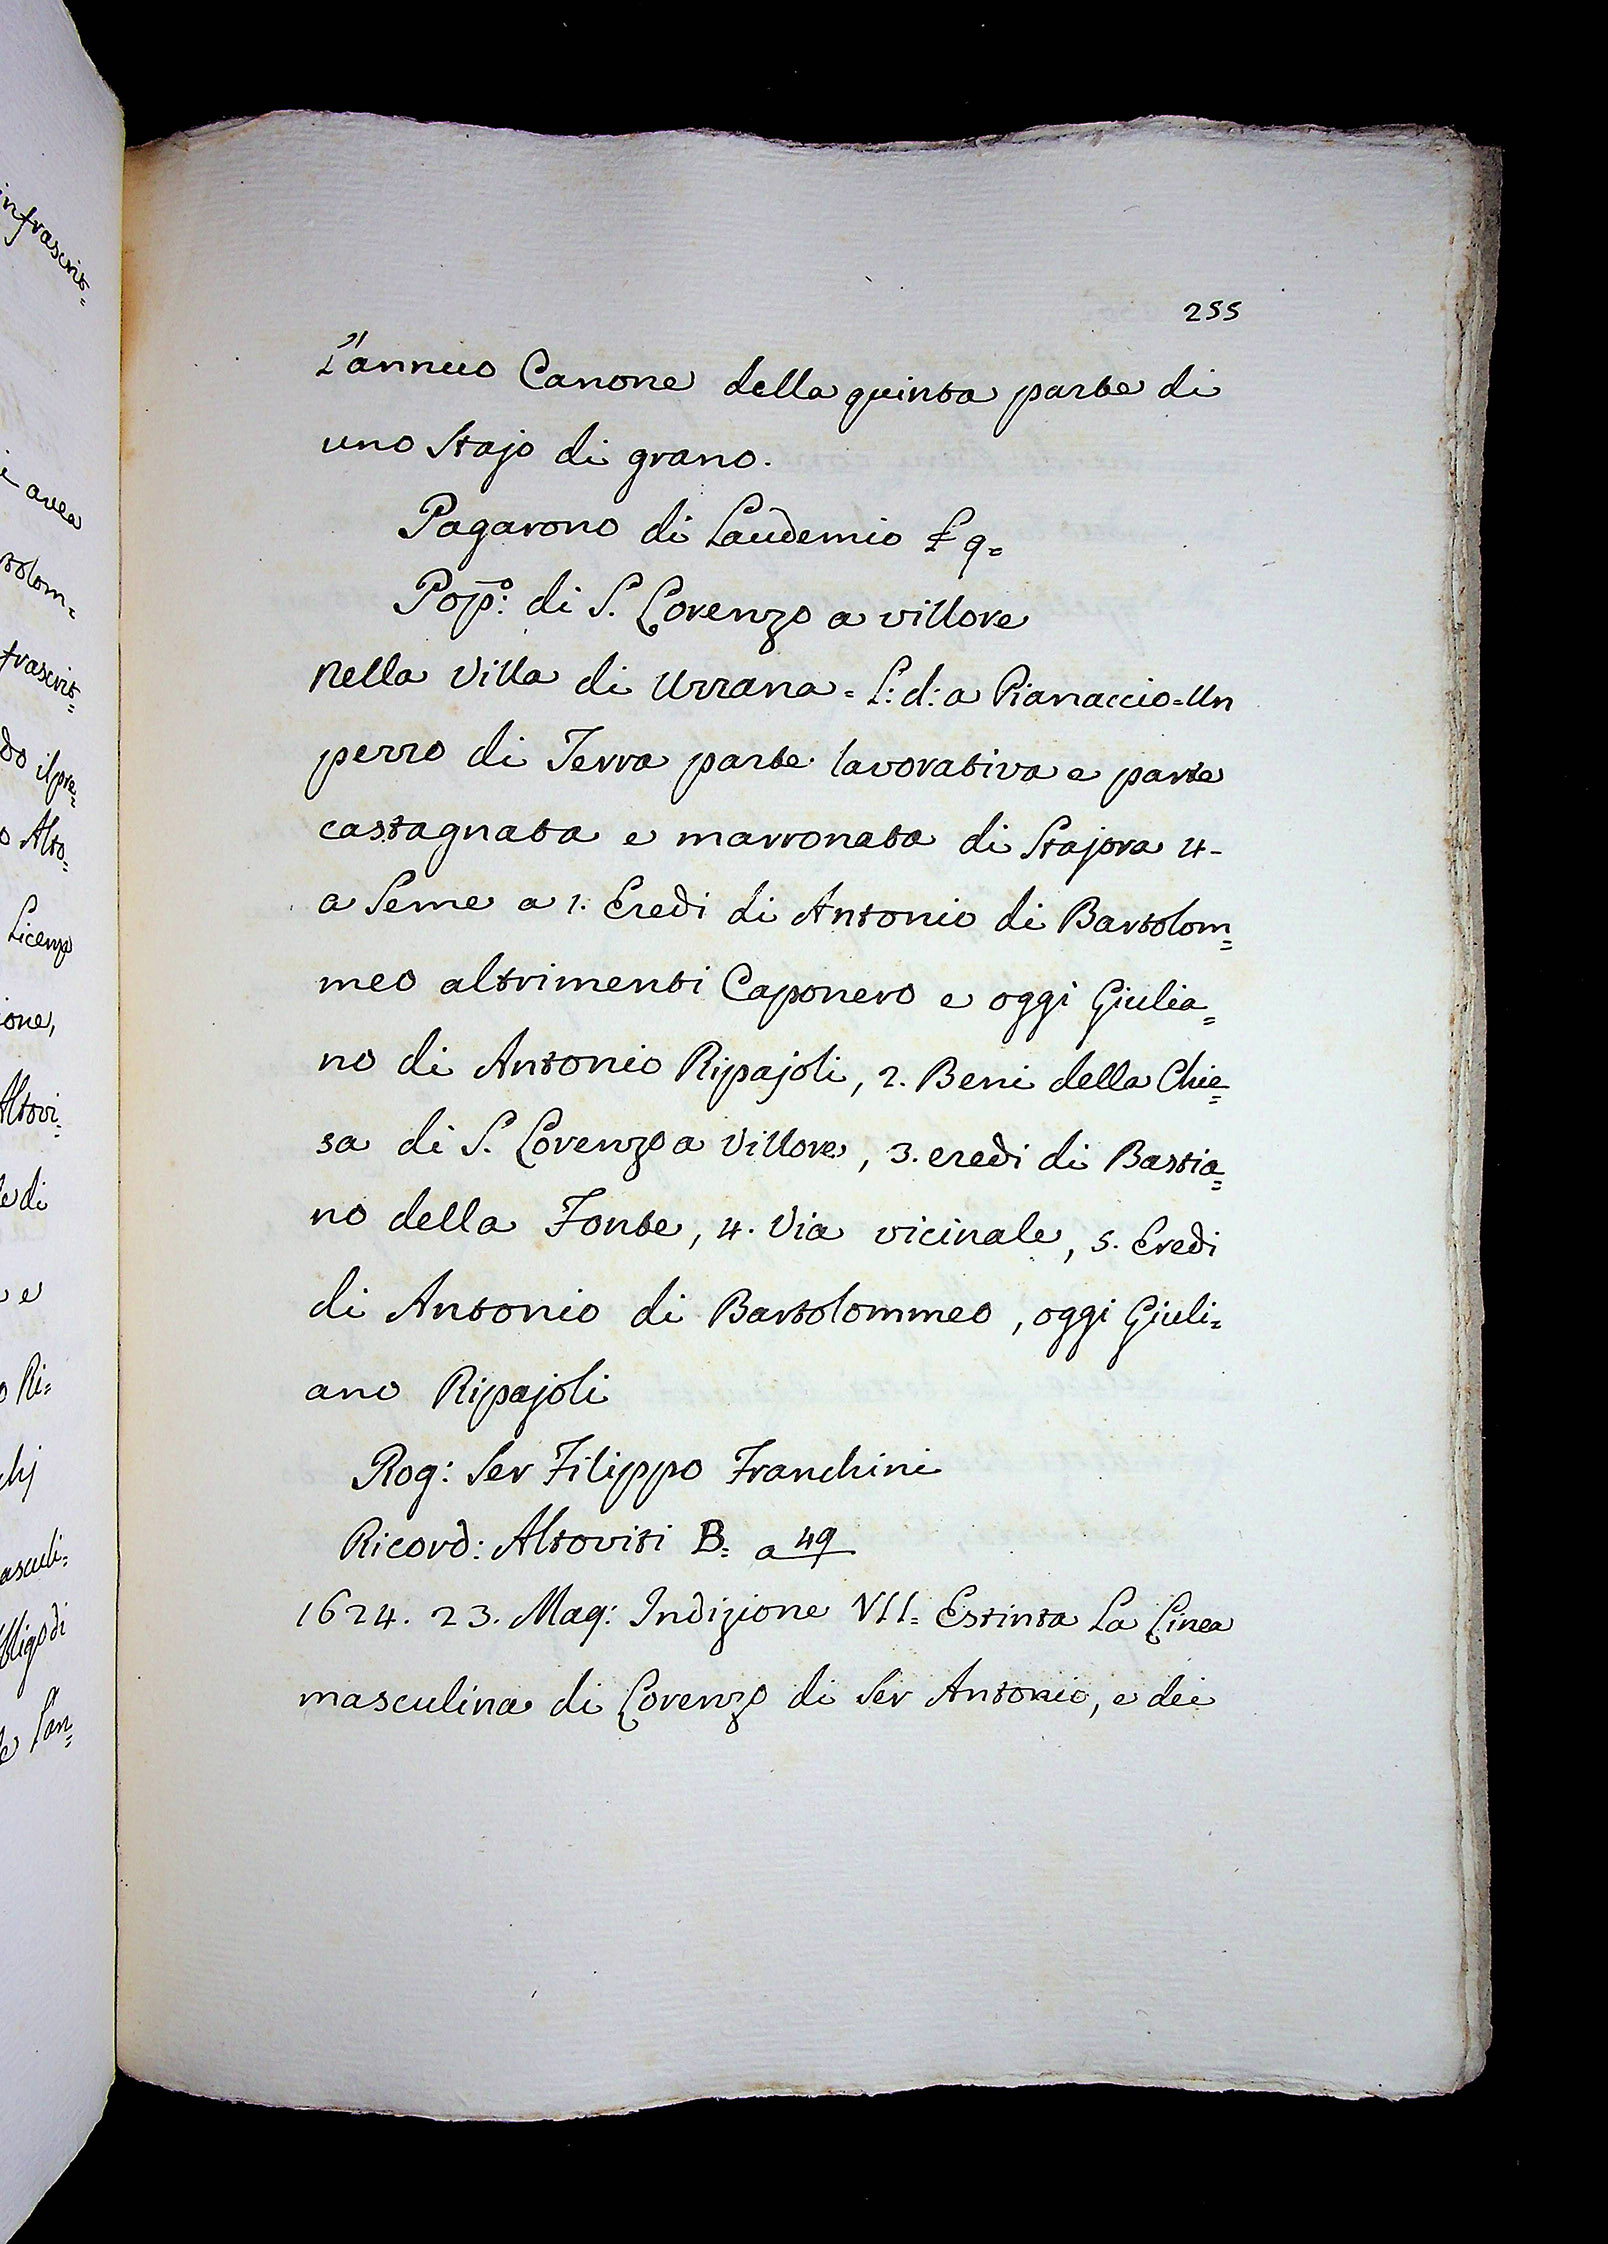 infrascrit=
avea
tolom=
frascrit=
do il pre=
o Alto=
Licenza
ione,
Altovi=
e di
e
o Ri=
chj
asculi=
bligo di
e Lau=
255
L'annuo Canone della quinta parte di
uno Stajo di grano.
Pagarono di Laudemio £ 9=
Pop:º di S. Lorenzo a villore
nella Villa di Uzzana = L: d: a Pianaccio = Un
pezzo di Terra parte lavorativa e parte
castagnata e marronata di Stajora 4-
a Seme a 1. Eredi di Antonio di Bartolom=
meo altrimenti Caponero e oggi Giulia=
no di Antonio Ripajoli, 2. Beni della Chie=
sa di S. Lorenzo a Villore, 3. eredi di Bastia=
no della Fonte, 4. Via vicinale, 5. Eredi
di Antonio di Bartolommeo, oggi Giuli=
ano Ripajoli
Rog: Ser Filippo Franchini
Ricord: Altoviti B= a 49
1624. 23. Mag: Indizione VII= Estinta La Linea
masculina di Lorenzo di Ser Antonio, e dei